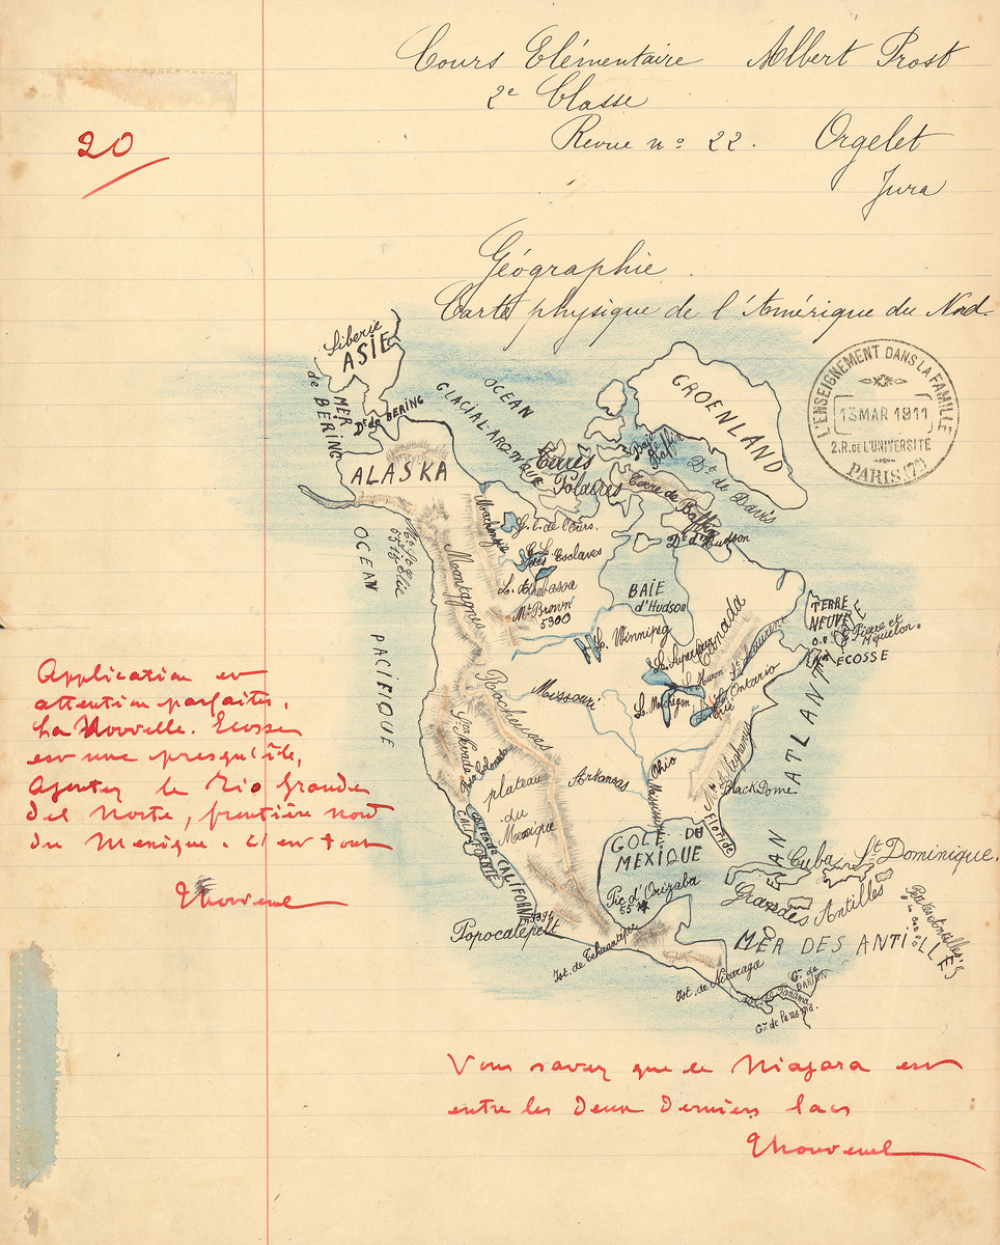 Cours Elémentaire Albert Prost
2e Classe
Revue no 22. Orgelet
Jura
20
Géographie.
Carte physique de l'Amérique du Nord.
L'ENSEIGNEMENT DANS LA FAMILLE
13 MAR 1911
2.R. DE L'UNIVERSITÉ
PARIS (7e)
Siberie
ASIE
MER
de BÉRING
Dt de BERING
OCEAN
GLACIAL-ARCTIQUE
GROENLAND
Baie
de
Baffin
Dt de Davis
Terres
Polaires
Terre de Baffin
Dt d'Hudson
ALASKA
Mackensie
G. L. de l'Ours.
G. L.
des Esclaves
L. Athabasca
Mt Brown
5300
Mt St Elie
BAIE
d'Hudson
Canada
L. Winnipeg
L. Supérieur
L. Huron
L. Michigan
L. Ontario
L. Erié
St Laurent
TERRE
NEUVE
St Pierre et
Miquelon.
ECOSSE
OCEAN
PACIFIQUE
Montagnes
Rocheuses
Missouri
Sra Nevada
Rio Colorado
plateau
du
Mexique
Arkansas
Ohio
Mississipi
Mts Alleghanys
BlackDome
FLORIDE
OCEAN
ATLANTIQUE
CALIFORNIE
GOLFE DE CALIFORNIE
GOLFE DU
MEXIQUE
Pic d'Orizaba
55
Popocatepelt
Cuba
St Dominique.
Grandes Antilles
Petites Antilles
MER DES ANTILLES
Ist. de Tehuantepec
Ist. de Nicaraga
G. de
DARIEN
Panama
Ge de Panama
Application et
attention parfaites.
La Nouvelle. Ecosse
est une presqu'île,
Ajoutez le Rio Grande
del Norte, frontière nord
du Mexique. C'est tout
Thouvenel
Vous savez que le Niagara est
entre les deux derniers lacs
Thouvenel